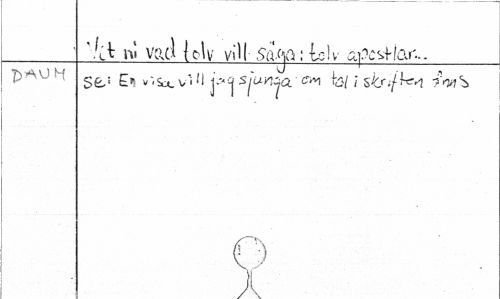 Vet ni vad tolv vill säga: tolv apostlar...
DAUM
se: En visa vill jag sjunga om tol i skriften finns